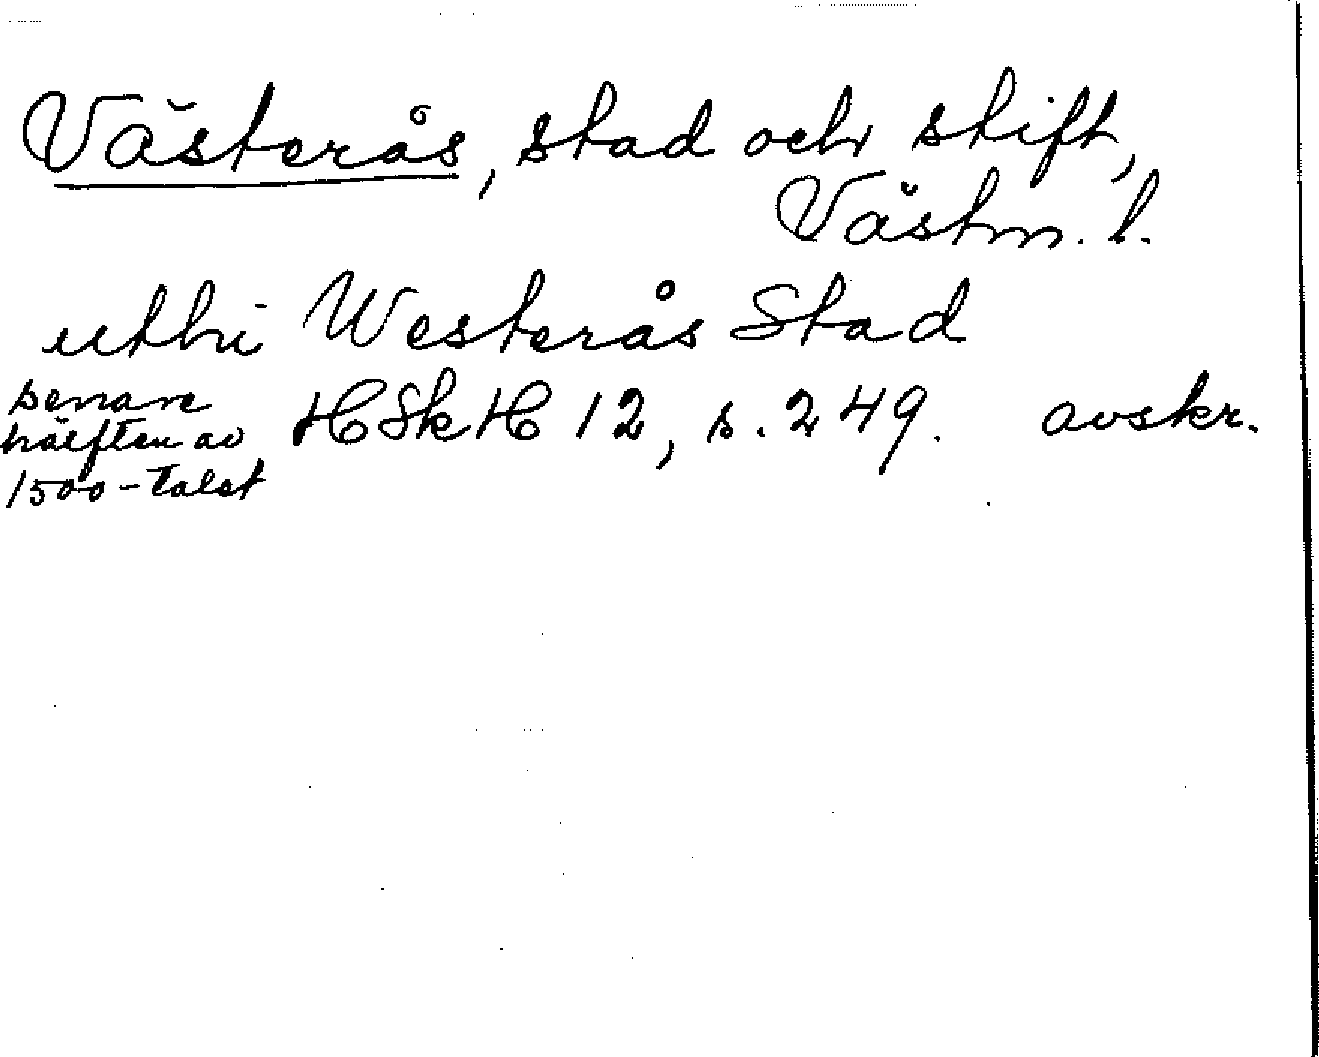 Västerås, stad och stift,
Västm. l.
uthi Westerås Stad
senare HSkH 12, s. 249. avskr.
hälften av
1500-talet